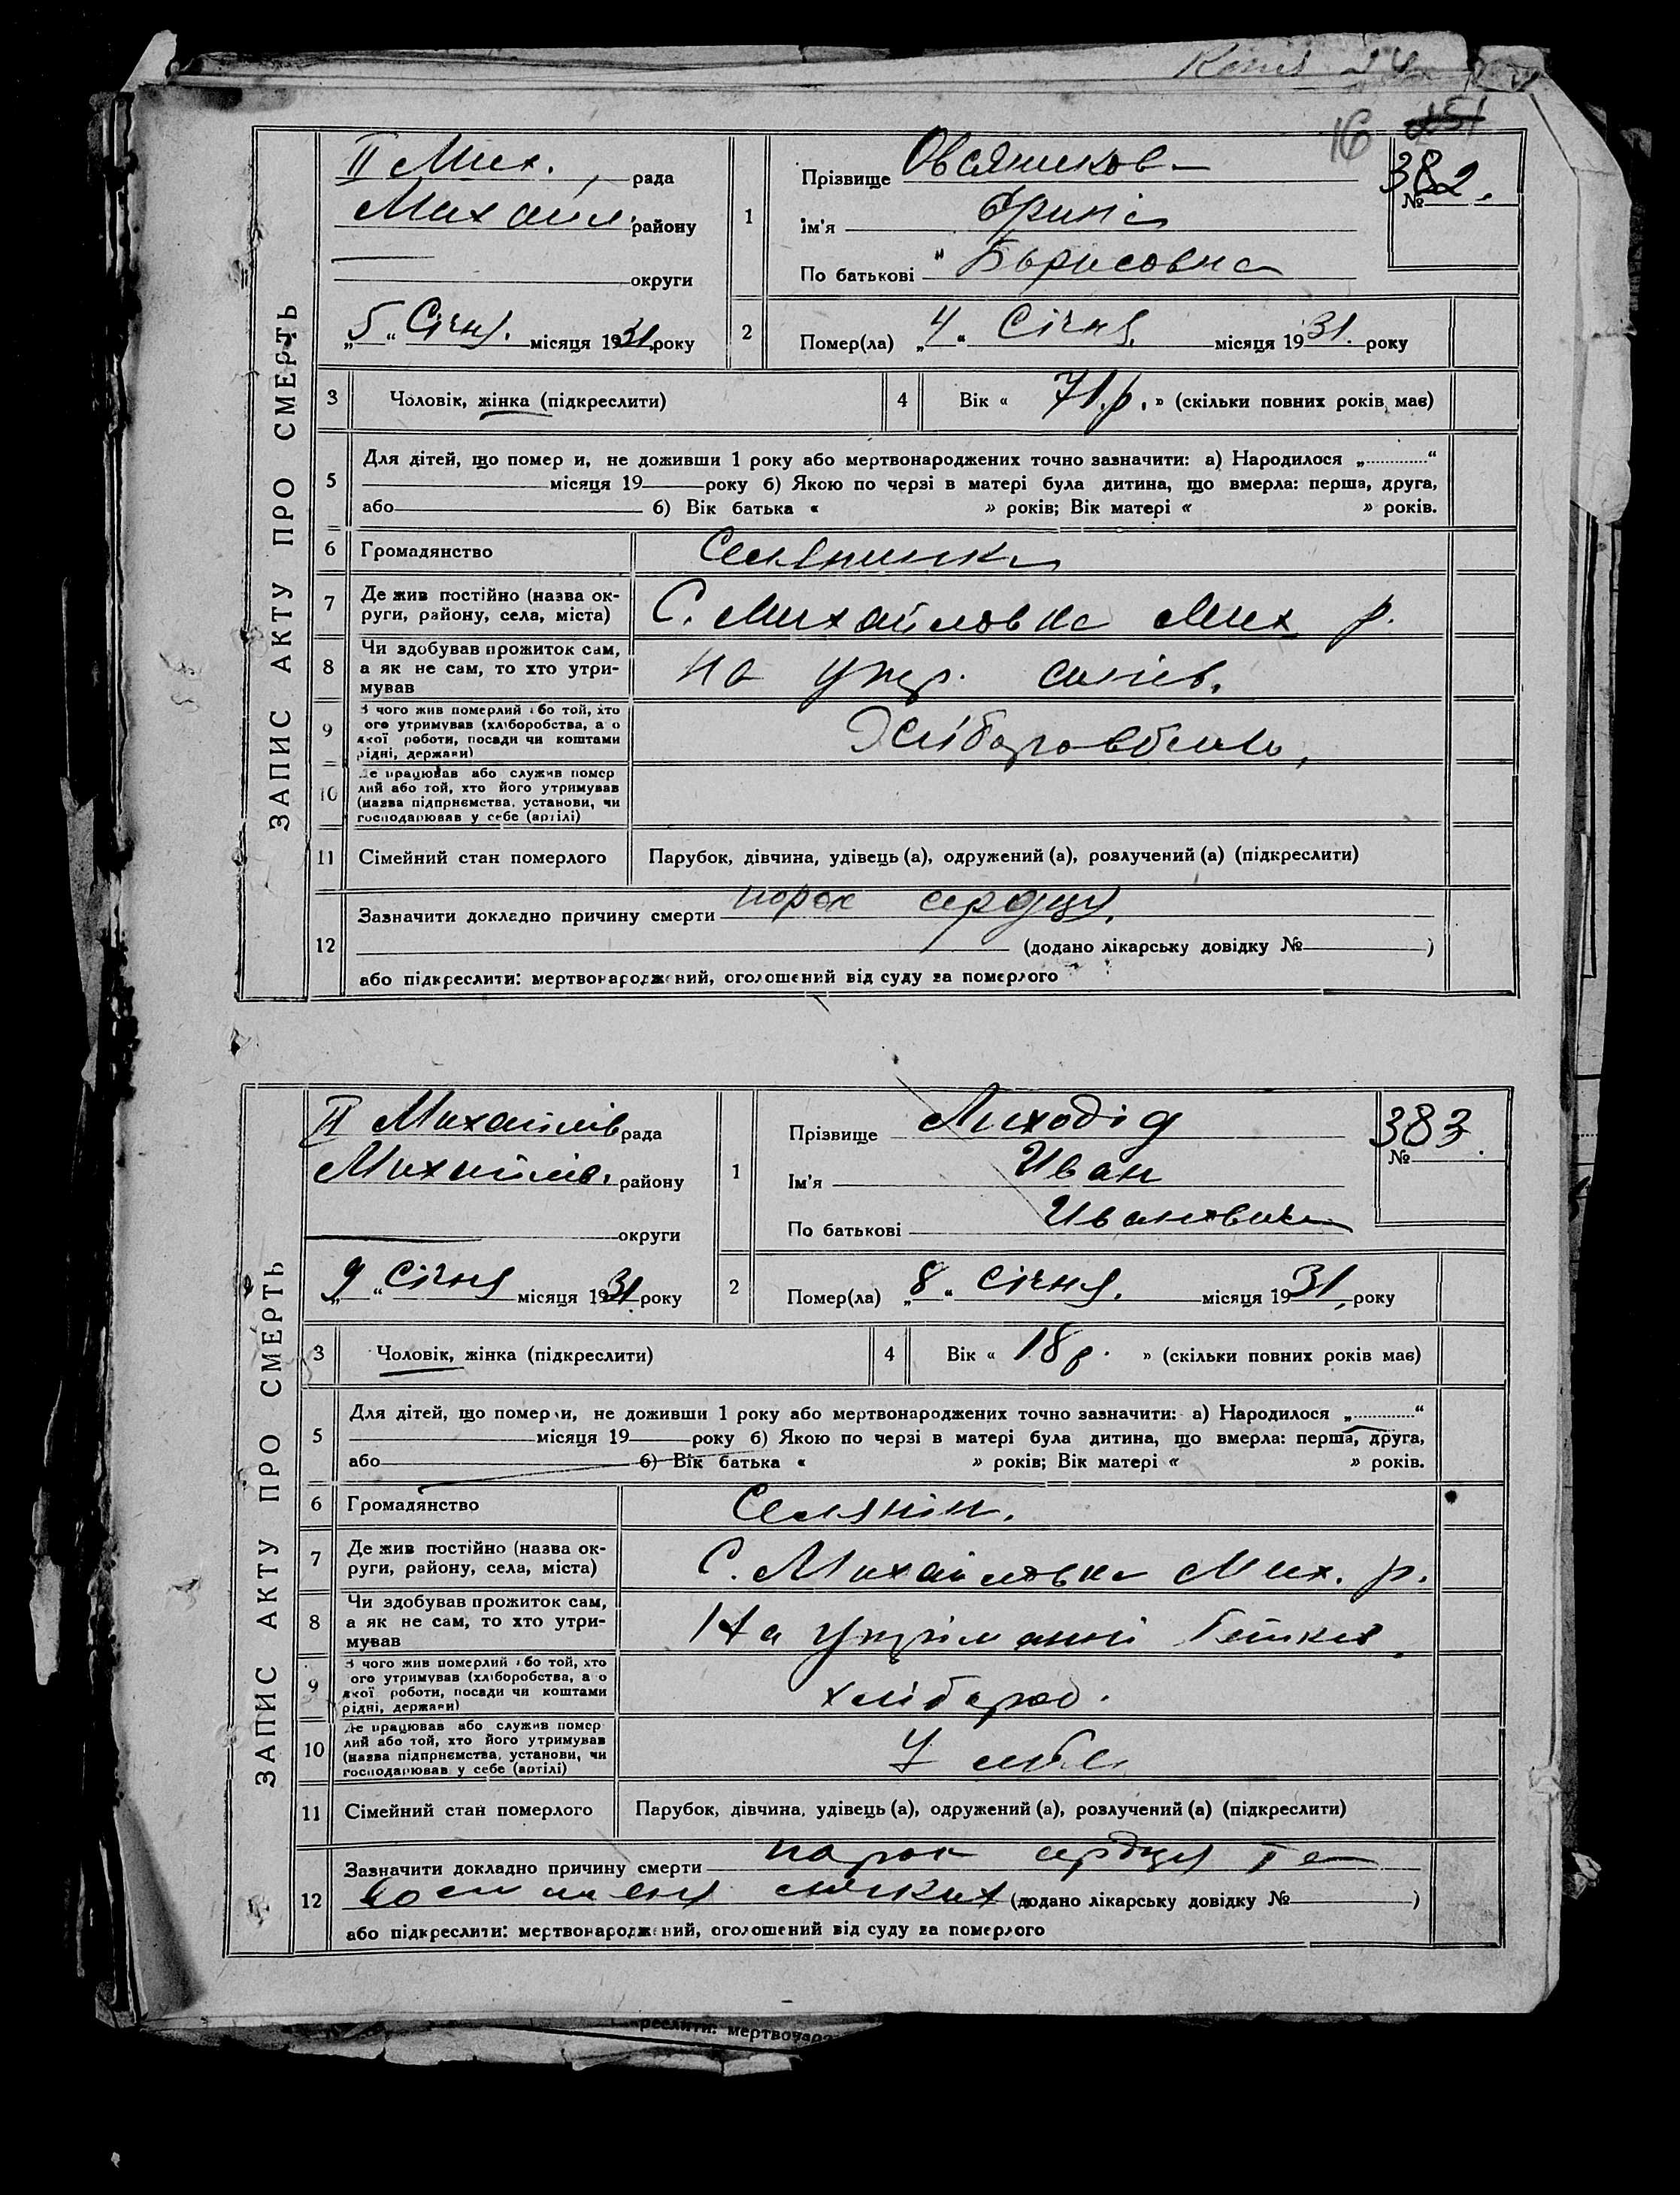 16 251
ЗАПИС АКТУ ПРО СМЕРТЬ
ІІ Мих. рада
Михайл. району
округи
„5“ Січня. місяця 1931 року
1
Прізвище Овсяников
Ім'я
По батькові Борисовна
382.
№
2
Помер(ла) „4“ Січня. місяця 1931. року
3 Чоловік, жінка (підкреслити)
4 Вік « 71.р. » (скільки повних років має)
5
Для дітей, що помер и, не доживши 1 року або мертвонароджених точно зазначити: а) Народилося „.............“
місяця 19 року б) Якою по черзі в матері була дитина, що вмерла: перша, друга,
або б) Вік батька « » років; Вік матері « » років.
6 Громадянство Селянинка
7 Де жив постійно (назва ок-
руги, району, села, міста) С. Михайловка Мих р.
8 Чи здобував прожиток сам,
а як не сам, то хто утри-
мував На утр. синів.
9 З чого жив померлий або той, хто
ого утримував (хліборобства, а о
якої роботи, посади чи коштами
рідні, держави)
10 Де працював або служив помер
лий або той, хто його утримував
(назва підприємства, установи, чи
господарював у себе (артілі)
11 Сімейний стан померлого Парубок, дівчина, удівець (а), одружений (а), розлучений (а) (підкреслити)
12
Зазначити докладно причину смерти порок сердця.
(додано лікарську довідку № )
або підкреслити: мертвонароджений, оголошений від суду за померлого
ЗАПИС АКТУ ПРО СМЕРТЬ
ІІ Михайлів рада
Михайлів. району
округи
„9“ Січня місяця 1931 року
1
Прізвище Лиходід
Ім'я Иван
По батькові Иванович
383.
№
2
Помер(ла) „8“ Січня. місяця 1931, року
3 Чоловік, жінка (підкреслити)
4 Вік « 18р. » (скільки повних років має)
5
Для дітей, що помер и, не доживши 1 року або мертвонароджених точно зазначити: а) Народилося „.............“
місяця 19 року б) Якою по черзі в матері була дитина, що вмерла: перша, друга,
або б) Вік батька « » років; Вік матері « » років.
6 Громадянство Селянін.
7 Де жив постійно (назва ок-
руги, району, села, міста) С. Михайловка Мих. р.
8 Чи здобував прожиток сам,
а як не сам, то хто утри-
мував На утріманні батька
9 З чого жив померлий або той, хто
ого утримував (хліборобства, а о
якої роботи, посади чи коштами
рідні, держави) хлібороб.
10 Де працював або служив помер
лий або той, хто його утримував
(назва підприємства, установи, чи
господарював у себе (артілі) У себе
11 Сімейний стан померлого Парубок, дівчина, удівець (а), одружений (а), розлучений (а) (підкреслити)
12
Зазначити докладно причину смерти порок сердця та
(додано лікарську довідку № )
або підкреслити: мертвонароджений, оголошений від суду за померлого